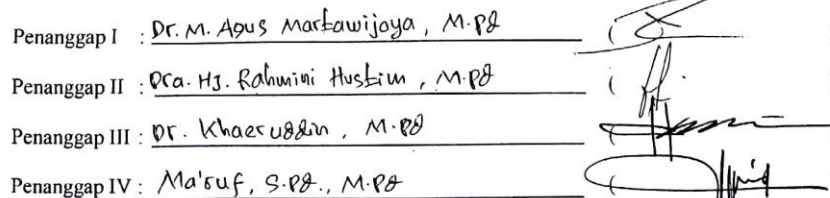 Penanggap I : Dr. M. Agus Martawijaya, M.Pd (
Penanggap II : Dra. Hj. Rahmini Hustim, M.Pd (
Penanggap III : Dr. Khaeruddin, M.Pd (
Penanggap IV : Ma'ruf, S.Pd., M.Pd (